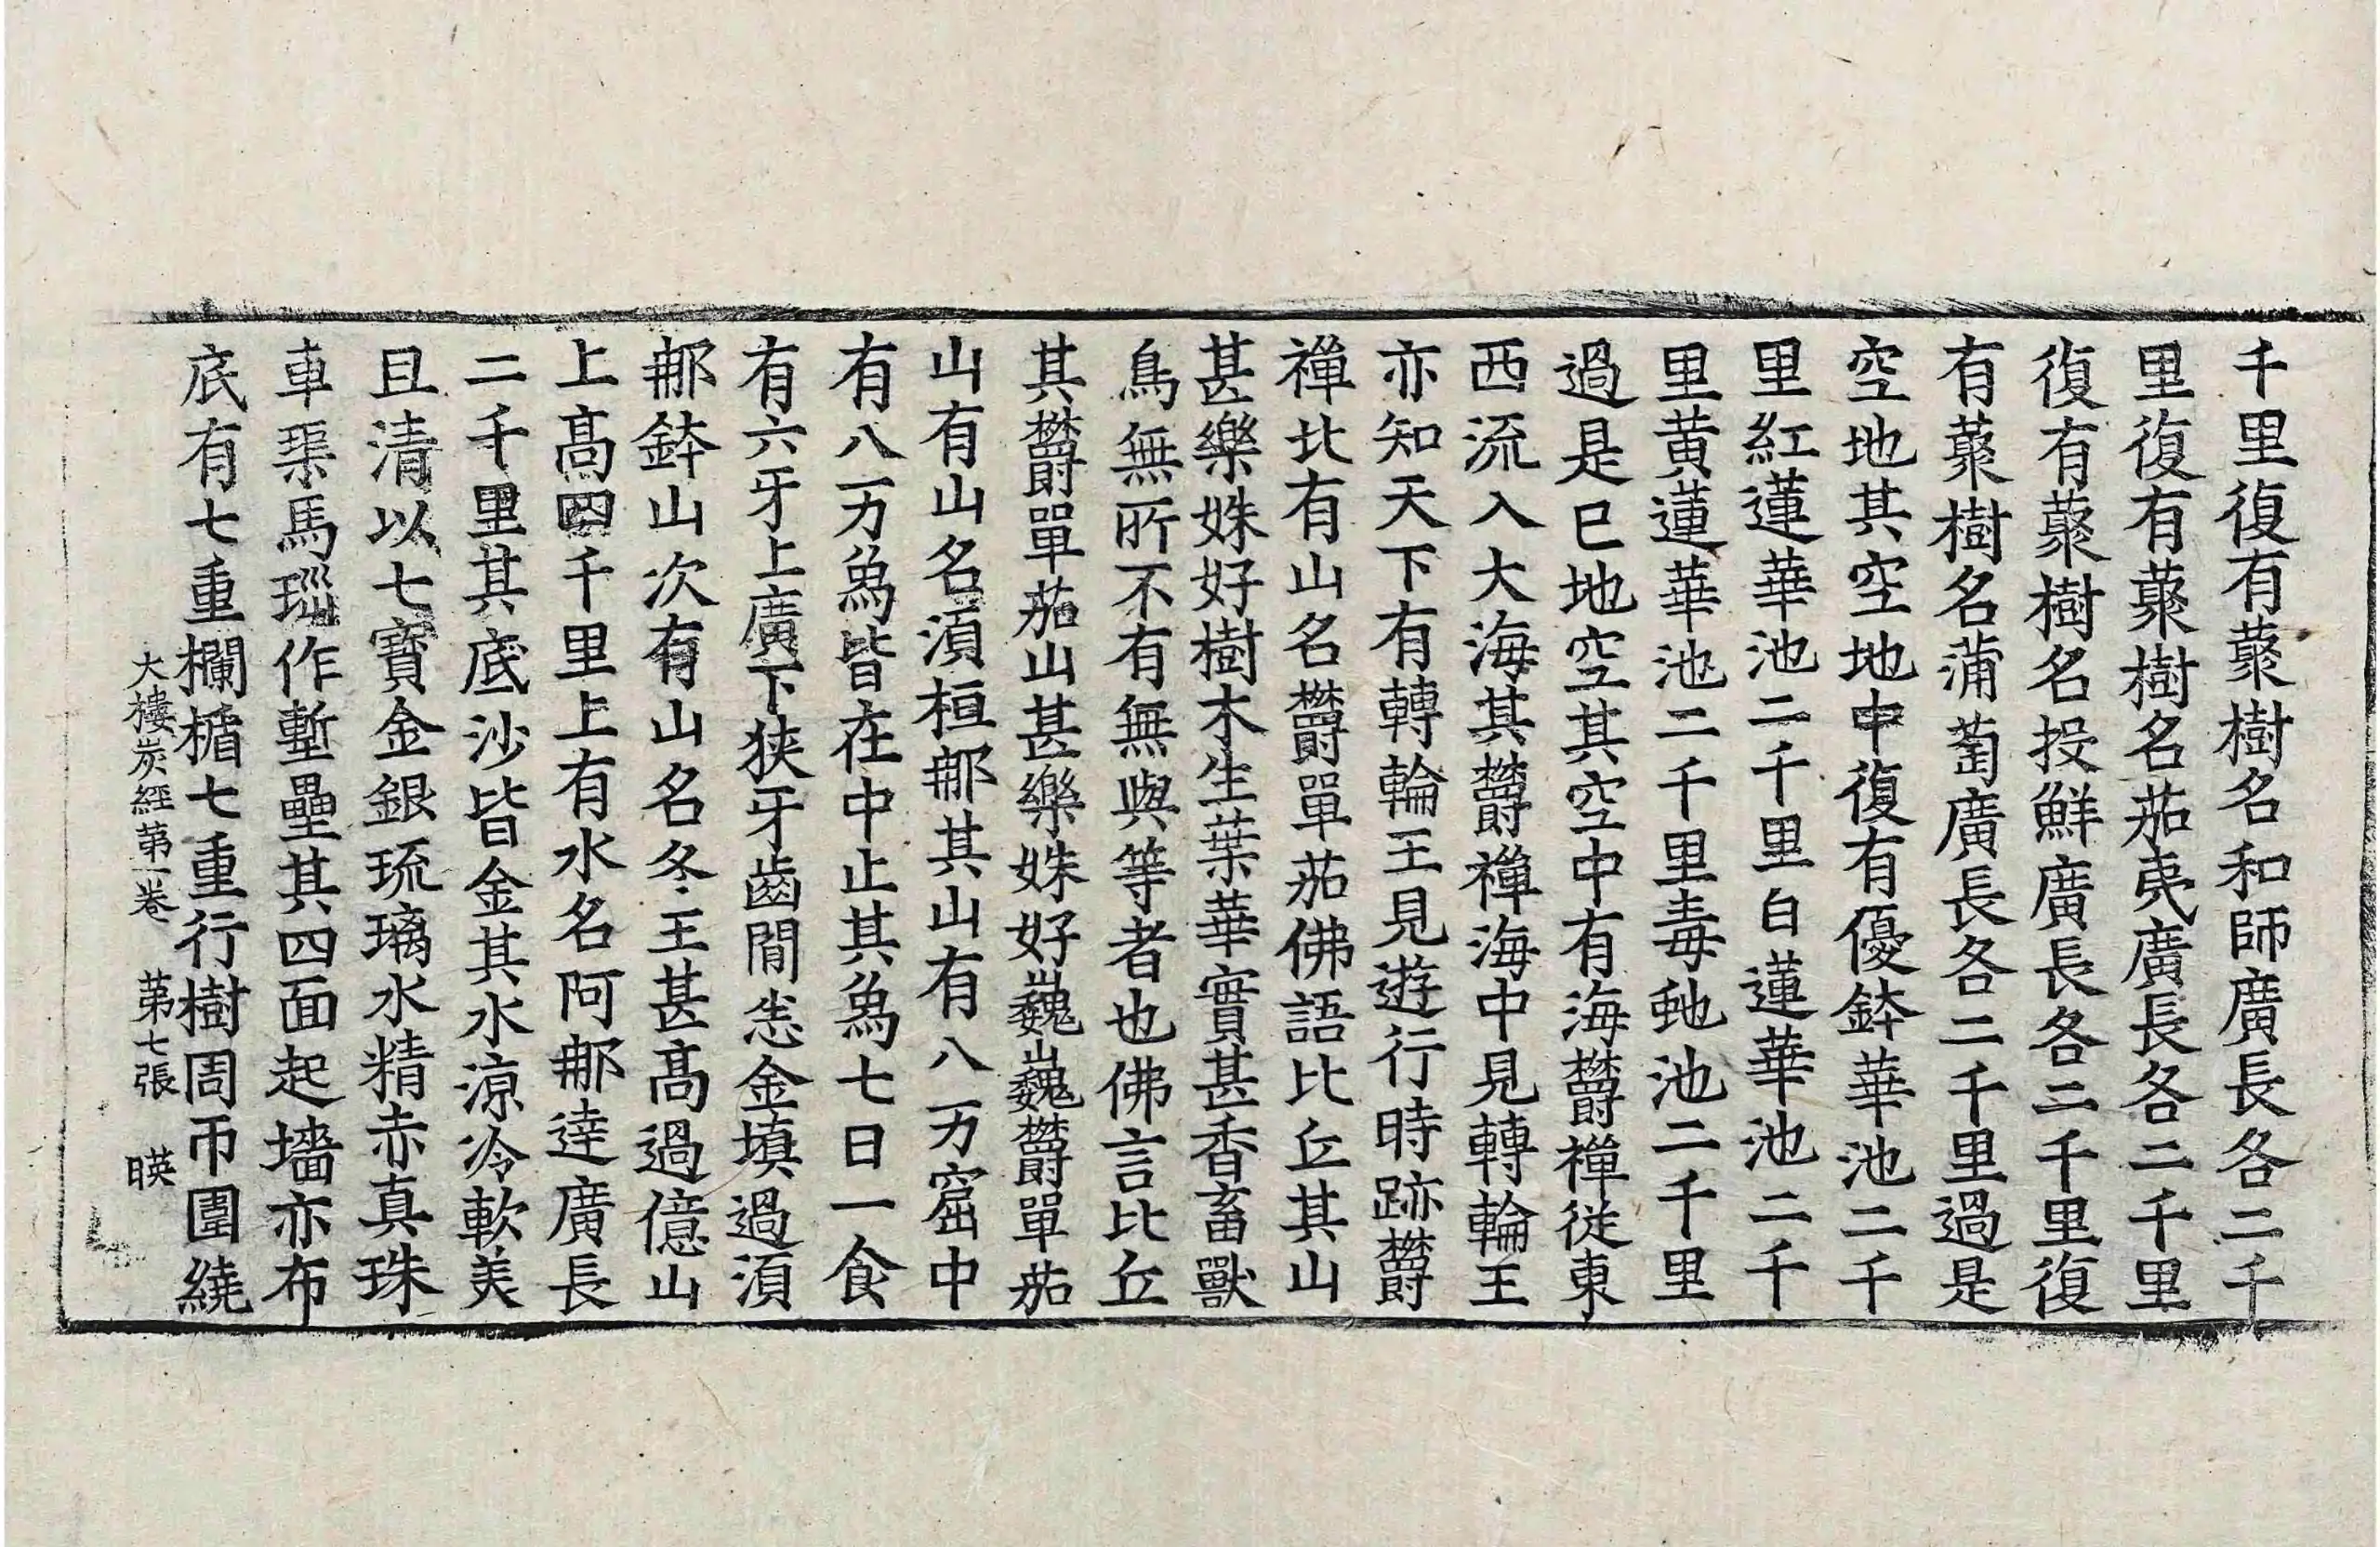 千里復有藂樹名和師廣長各二千
里復有藂樹名茄夷廣長各二千里
復有藂樹名投鮮廣長各二千里復
有藂樹名蒲萄廣長各二千里過是
空地其空地中復有優鉢華池二千
里紅蓮華池二千里白蓮華池二千
里黄蓮華池二千里毒虵池二千里
過是已地空其空中有海欝禪從東
西流入大海其欝禪海中見轉輪王
亦知天下有轉輪王見遊行時跡欝
禪比有山名欝單茄佛語比丘其山
甚樂姝好樹木生葉華實甚香畜獸
鳥無所不有無與等者也佛言比丘
其欝單茄山甚樂姝好巍巍欝單茄
山有山名湏桓郍其山有八万窟中
有八万爲皆在中止其爲七日一食
有六牙上廣下狹牙齒閒恚金填過湏
郍鉢山次有山名冬王甚髙過億山
上髙四千里上有水名阿郍達廣長
二千里其底沙皆金其水涼冷軟美
且清以七寶金銀琉璃水精赤真珠
車𤦲馬瑙作壍壘其四面起墻亦布
底有七重欄楯七重行樹周帀圍繞
大樓炭經苐一卷 苐七張 暎